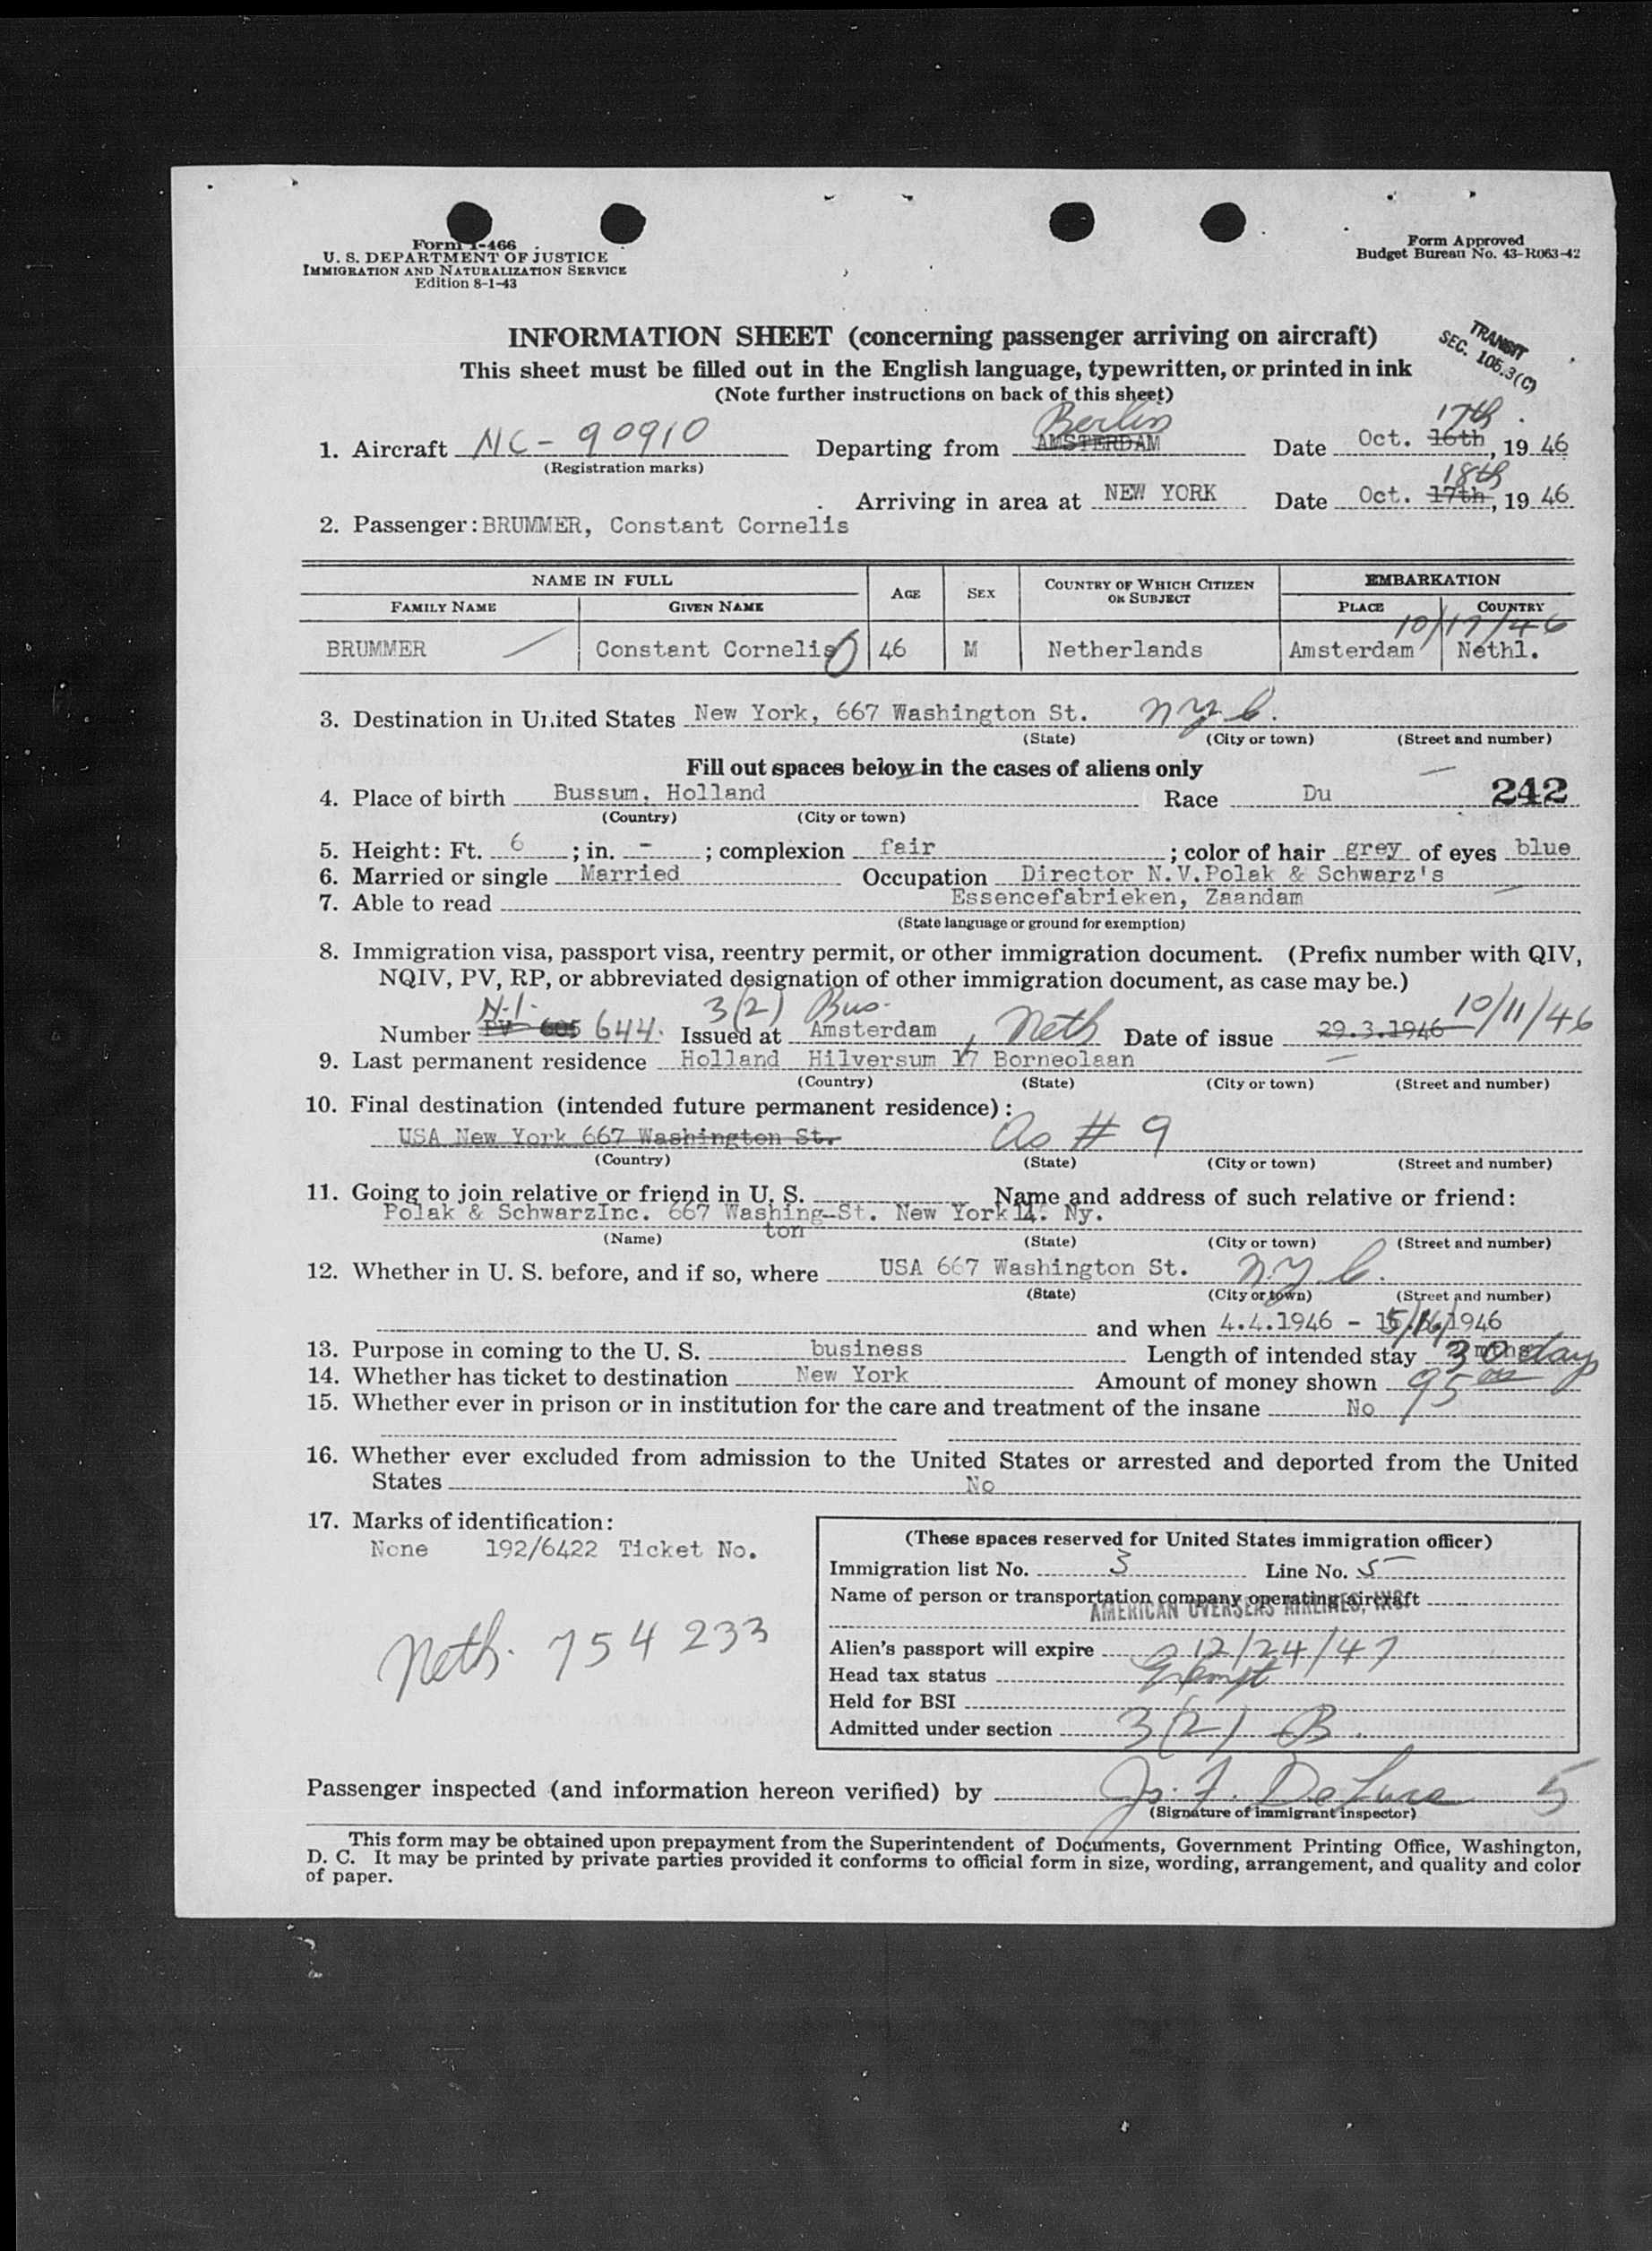 Form I-466
U. S. DEPARTMENT OF JUSTICE
IMMIGRATION AND NATURALIZATION SERVICE
Edition 8-1-43
Form Approved
Budget Bureau No. 43-R063-42
INFORMATION SHEET (concerning passenger arriving on aircraft)
TRANSIT
SEC. 105.3(C)
This sheet must be filled out in the English language, typewritten, or printed in ink
(Note further instructions on back of this sheet)
Berlin 17th
1. Aircraft NC-90910 Departing from AMSTERDAM Date Oct. 16th, 19 46
(Registration marks)
18th
Arriving in area at NEW YORK Date Oct. 17th, 19 46
2. Passenger: BRUMMER, Constant Cornelis
NAME IN FULL AGE SEX COUNTRY OF WHICH CITIZEN OR SUBJECT EMBARKATION
FAMILY NAME GIVEN NAME PLACE COUNTRY
10/17/46
BRUMMER Constant Cornelis 46 M Netherlands Amsterdam Nethl.
3. Destination in United States New York, 667 Washington St. N.Y.C.
(State) (City or town) (Street and number)
Fill out spaces below in the cases of aliens only
4. Place of birth Bussum, Holland Race Du 242
(Country) (City or town)
5. Height: Ft. 6 ; in. - ; complexion fair ; color of hair grey of eyes blue
6. Married or single Married Occupation Director N.V.Polak & Schwarz's
7. Able to read Essencefabrieken, Zaandam
(State language or ground for exemption)
8. Immigration visa, passport visa, reentry permit, or other immigration document. (Prefix number with QIV,
NQIV, PV, RP, or abbreviated designation of other immigration document, as case may be.)
N.I. 3(2) Bus. 10/11/46
Number PV 605 644. Issued at Amsterdam, Neth Date of issue 29.3.1946
9. Last permanent residence Holland Hilversum 17 Borneolaan
(Country) (State) (City or town) (Street and number)
10. Final destination (intended future permanent residence):
USA New York 667 Washington St. As # 9
(Country) (State) (City or town) (Street and number)
11. Going to join relative or friend in U. S. Name and address of such relative or friend:
Polak & SchwarzInc. 667 Washing-St. New York 14. Ny.
ton
(Name) (State) (City or town) (Street and number)
12. Whether in U. S. before, and if so, where USA 667 Washington St. N.Y.C.
(State) (City or town) (Street and number)
and when 4.4.1946 - 1946
13. Purpose in coming to the U. S. business Length of intended stay 30 days
14. Whether has ticket to destination New York Amount of money shown 95 00
15. Whether ever in prison or in institution for the care and treatment of the insane No
16. Whether ever excluded from admission to the United States or arrested and deported from the United
States No
17. Marks of identification:
None 192/6422 Ticket No.
Neth. 754233
(These spaces reserved for United States immigration officer)
Immigration list No. 3 Line No. 5
Name of person or transportation company operating aircraft
AMERICAN OVERSEAS AIRLINES, INC.
Alien's passport will expire 12/24/47
Head tax status Exempt
Held for BSI
Admitted under section 3(2) B.
Passenger inspected (and information hereon verified) by Jo. F. DeLuca 5
(Signature of immigrant inspector)
This form may be obtained upon prepayment from the Superintendent of Documents, Government Printing Office, Washington,
D. C. It may be printed by private parties provided it conforms to official form in size, wording, arrangement, and quality and color
of paper.